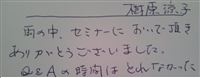 樹原涼子
雨の中、セミナーにおいで頂き
ありがとうございました。
Q&Aの時間はとれなかった